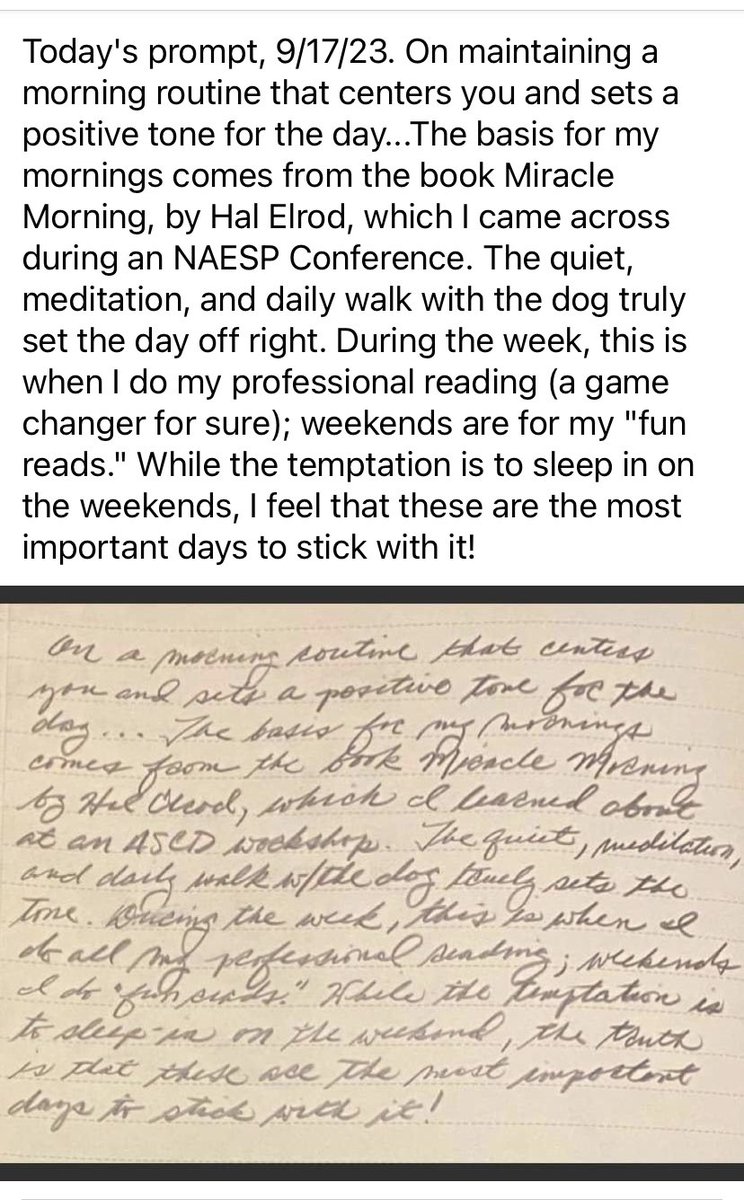 Today's prompt, 9/17/23. On maintaining a
morning routine that centers you and sets a
positive tone for the day...The basis for my
mornings comes from the book Miracle
Morning, by Hal Elrod, which I came across
during an NAESP Conference. The quiet,
meditation, and daily walk with the dog truly
set the day off right. During the week, this is
when I do my professional reading (a game
changer for sure); weekends are for my "fun
reads." While the temptation is to sleep in on
the weekends, I feel that these are the most
important days to stick with it!
On a morning routine that centers
you and sets a positive tone for the
day... The basis for my mornings
comes from the book Miracle Morning
by Hal Elrod, which I learned about
at an ASCD workshop. The quiet, meditation,
and daily walk w/the dog truly sets the
tone. During the week, this is when I
do all my professional reading; weekends
I do "fun reads." While the temptation is
to sleep-in on the weekend, the truth
is that these are the most important
days to stick with it!